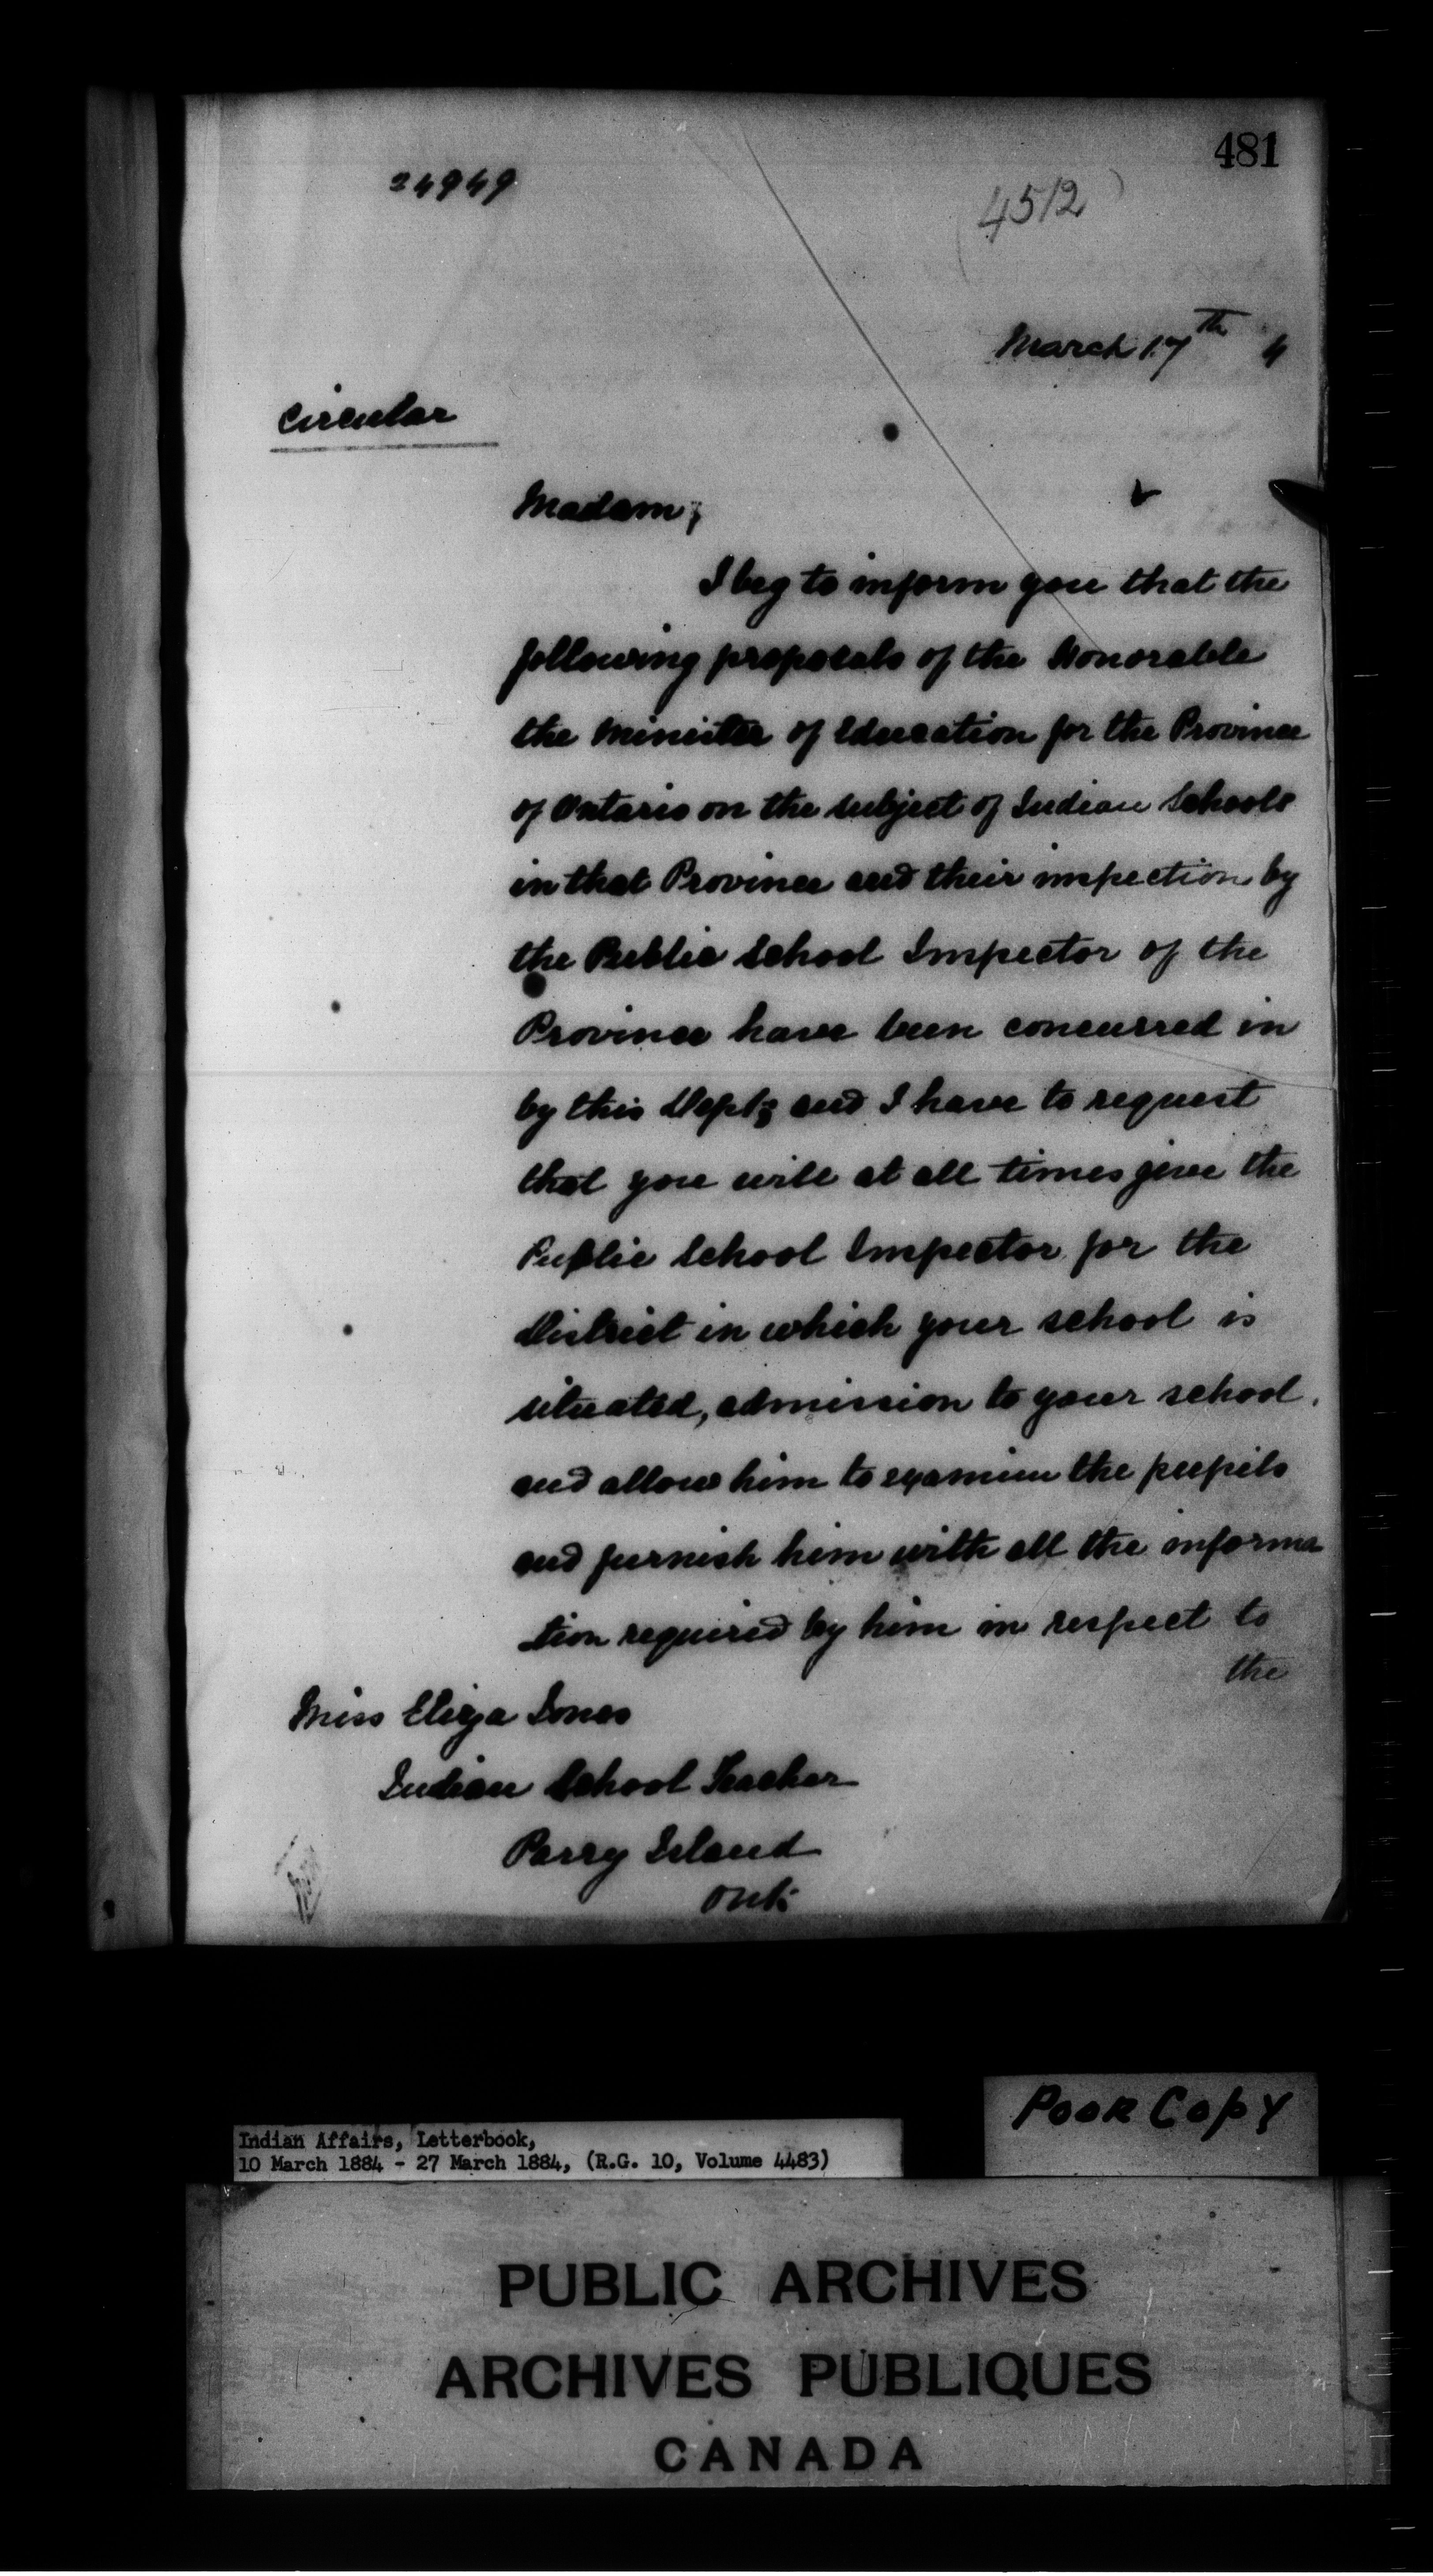 481
24949
4512
March 17th 4
Circular
Madam,
I beg to inform you that the
following proposals of the Honorable
the Minister of Education for the Province
of Ontario on the subject of Indian Schools
in that Province and their inspection by
the Public School Inspector of the
Province have been concurred in
by this Dept; and I have to request
that you will at all times give the
Public School Inspector for the
District in which your school is
situated, admission to your school,
and allow him to examine the pupils
and furnish him with all the informa
tion required by him in respect to
the
Miss Eliza Jones
Indian School Teacher
Parry Island
Ont:
Poor Copy
Indian Affairs, Letterbook,
10 March 1884 - 27 March 1884, (R.G. 10, Volume 4483)
PUBLIC ARCHIVES
ARCHIVES PUBLIQUES
CANADA